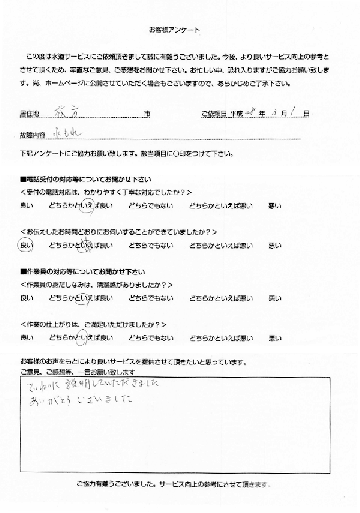 お客様アンケート
この度は水道サービスにご依頼頂きまして誠に有難うございました。今後、より良いサービス向上の参考と
させて頂くため、率直なご意見、ご感想をお聞かせ下さい。お忙しい中、恐れ入りますがご協力お願い致しま
す。尚、ホームページに公開させていただく場合もございますので、あらかじめご了承下さい。
居住地 枚方 市 ご依頼日 平成 年 月 日
故障内容 水もれ
下記アンケートにご協力お願い致します。該当項目に〇印をつけて下さい。
■電話受付の対応等についてお聞かせ下さい
<受付の電話対応は、わかりやすく丁寧な対応でしたか?>
良い どちらかといえば良い どちらでもない どちらかといえば悪い 悪い
<お伝えしたお時間どおりにお伺いすることができていましたか?>
良い どちらかといえば良い どちらでもない どちらかといえば悪い 悪い
■作業員の対応等についてお聞かせ下さい
<作業員の身だしなみは、清潔感がありましたか?>
良い どちらかといえば良い どちらでもない どちらかといえば悪い 悪い
<作業の仕上がりは、ご満足いただけましたか?>
良い どちらかといえば良い どちらでもない どちらかといえば悪い 悪い
お客様のお声をもとにより良いサービスを提供させて頂きたいと思っています。
ご意見、ご感想等、一言お願い致します
ていねいに説明していただきました
ありがとうございました
ご協力有難うございました。サービス向上の参考にさせて頂きます。